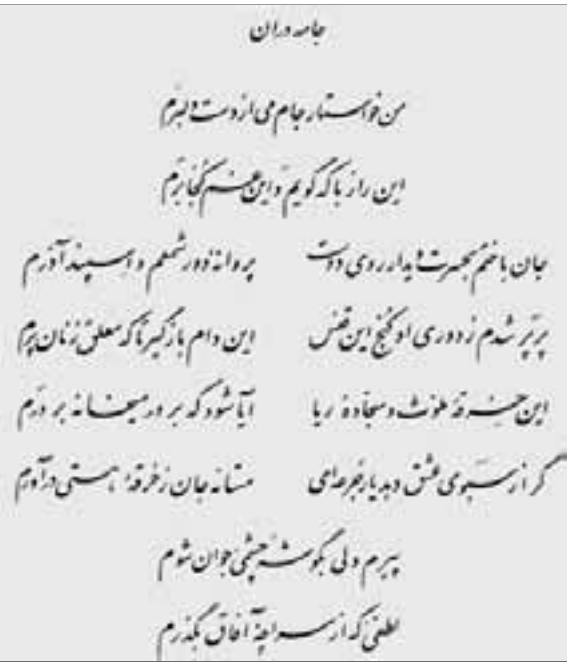 جامه دران
من خواستار جام می از دست دلبرم
این راز با که گویم و این غم کجا برم
جان باختم بحسرت دیدار روی دوست پروانه دور شمعم و اسپند آذرم
پرپر شدم ز دوری او کنج این قفس این دام بازگیر تا که معلق زنان پرم
این خرقهٔ ملوث و سجادهٔ ریا آیا شود که بر در میخانه بردرم
گر از سبوی عشق دهد یار جرعه‌ای مستانه جان ز خرقهٔ هستی درآورم
پیرم ولی بگوشهٔ چشمی جوان شوم
لطفی که از سراچهٔ آفاق بگذرم